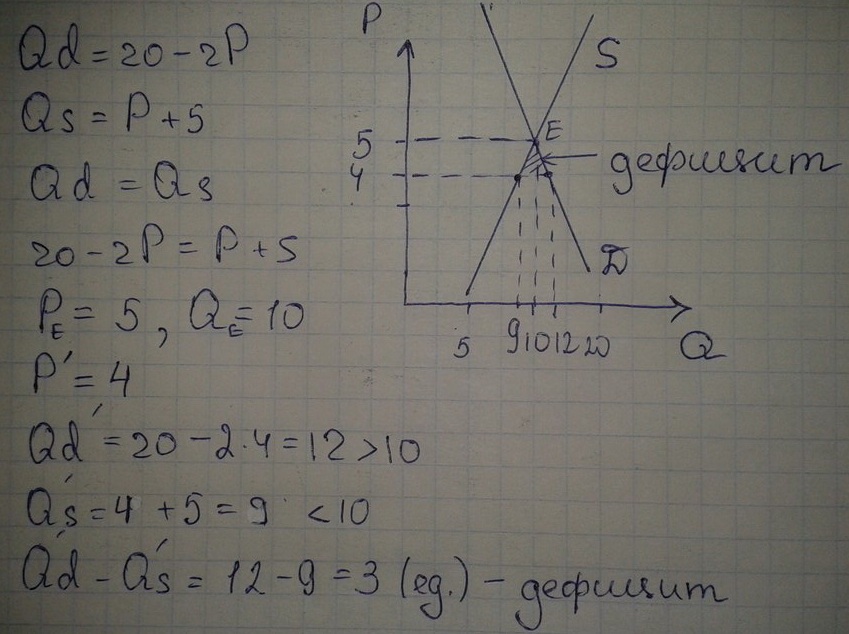 Qd = 20 - 2P
Qs = P + 5
Qd = Qs
20 - 2P = P + 5
P_E = 5, Q_E = 10
P' = 4
Qd' = 20 - 2·4 = 12 > 10
Qs' = 4 + 5 = 9 < 10
Qd' - Qs' = 12 - 9 = 3 (ед.) - дефицит
P
S
5
E
4
дефицит
D
5 9 10 12 20
Q